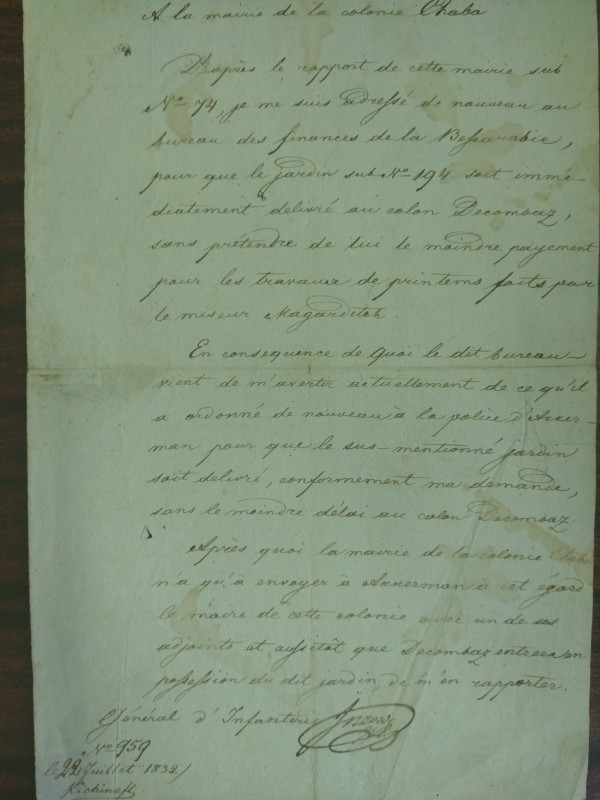 A la mairie de la colonie Chaba
D'après le rapport de cette mairie sub
No 74, je me suis adressé de nouveau au
bureau des finances de la Bessarabie,
pour que le jardin sub No 194 soit immé-
diatement delivré au colon Decombaz,
sans prétendre de lui le moindre payement
pour les travaux de printems faits par
le miseur Magarditch.
En consequence de quoi le dit bureau
vient de m'avertir actuellement de ce qu'il
a ordonné de nouveau à la police d'Akker-
man pour que le sus-mentionné jardin
soit delivré, conformement ma demande,
sans le moindre délai au colon Decombaz.
Après quoi la mairie de la colonie
n'a qu'à envoyer à Akkerman à cet égard
le maire de cette colonie avec un de ses
adjoints et aussitôt que Decombaz entrera en
possession du dit jardin, de m'en rapporter.
Général d'Infanterie Inzow
No 959
le 22 Juillet 1832
Kicheneff